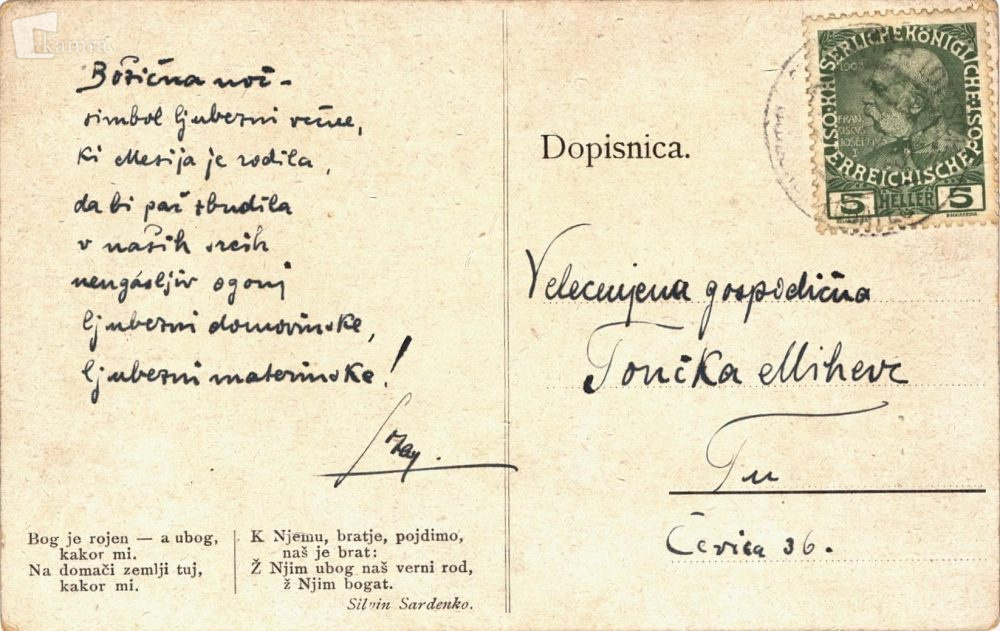 kamra
Božična noč –
simbol ljubezni večne,
ki Mesija je rodila,
da bi pač zbudila
v naših srcih
neugásljiv ogenj
ljubezni domovinske,
ljubezni materinske!
Bog je rojen — a ubog,
kakor mi.
Na domači zemlji tuj,
kakor mi.
K Njemu, bratje, pojdimo,
naš je brat:
Ž Njim ubog naš verni rod,
ž Njim bogat.
Silvin Sardenko.
Dopisnica.
KAISERLICHE KÖNIGLICHE POST
ÖSTERREICHISCHE
1908
FRAN
CISCVS
JOSEPH I
5 HELLER 5
Velecenjena gospodična
Tončka Mihevc
Tu
Čevica 36.